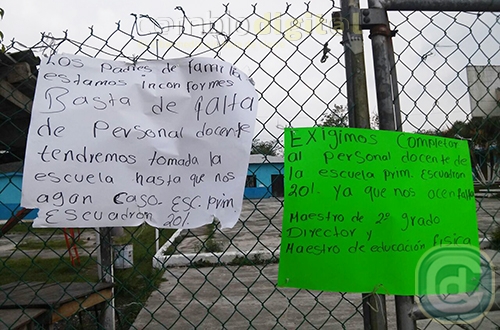 Cambiodigital
Los Padres de familia
estamos inconformes
Basta de falta
de Personal docente
tendremos tomada la
escuela hasta que nos
agan caso. ESC. Prim
Escuadron 201.
Exigimos completar
al personal docente de
la escuela prim. Escuadron
201. ya que nos acen falta
Maestro de 2º grado
Director y
Maestro de educación fisica
cd